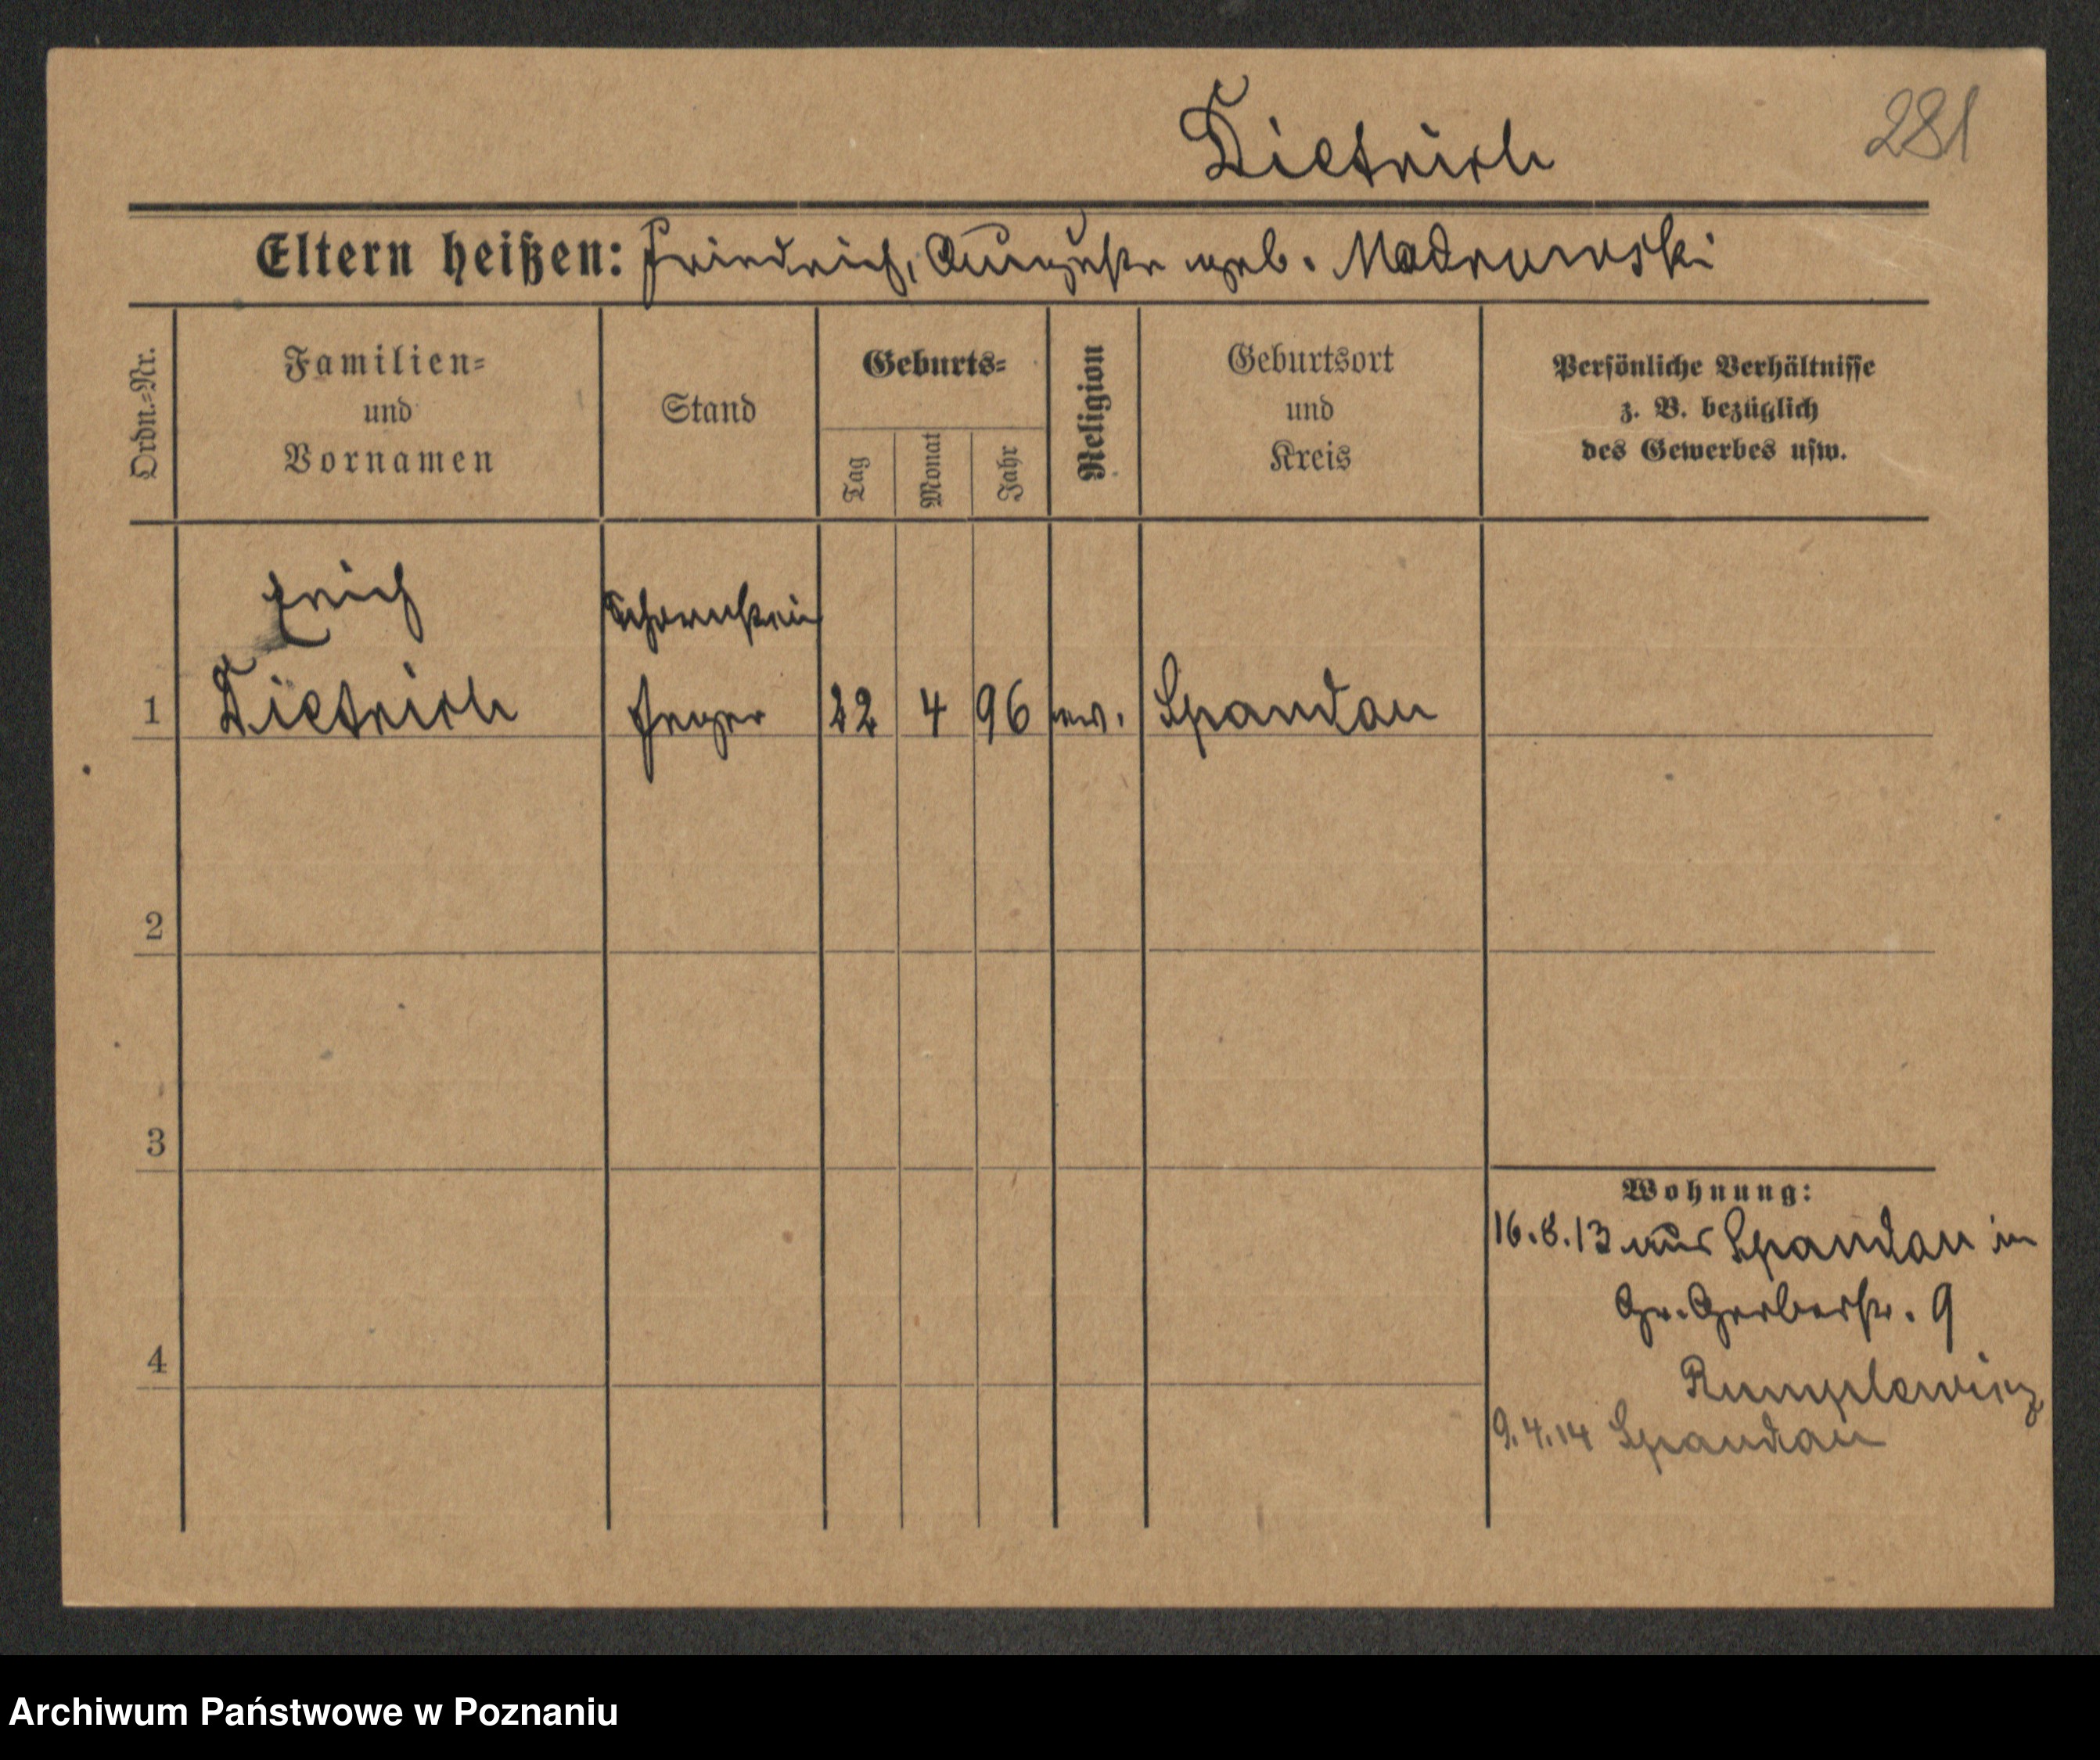 Dietrich
281
Eltern heißen: Friedrich, Auguste geb. Madrowski
Ordn.-Nr.
Familien-
und
Vornamen
Stand
Geburts-
Tag
Monat
Jahr
Religion
Geburtsort
und
Kreis
Persönliche Verhältnisse
z. B. bezüglich
des Gewerbes usw.
Erich
Schornstein
1 Dietrich feger 22 4 96 ev. Spandau
2
3
Wohnung:
16.8.13 aus Spandau in
Gr. Gerberstr. 9
4
9.4.14 Spandau
Archiwum Państwowe w Poznaniu